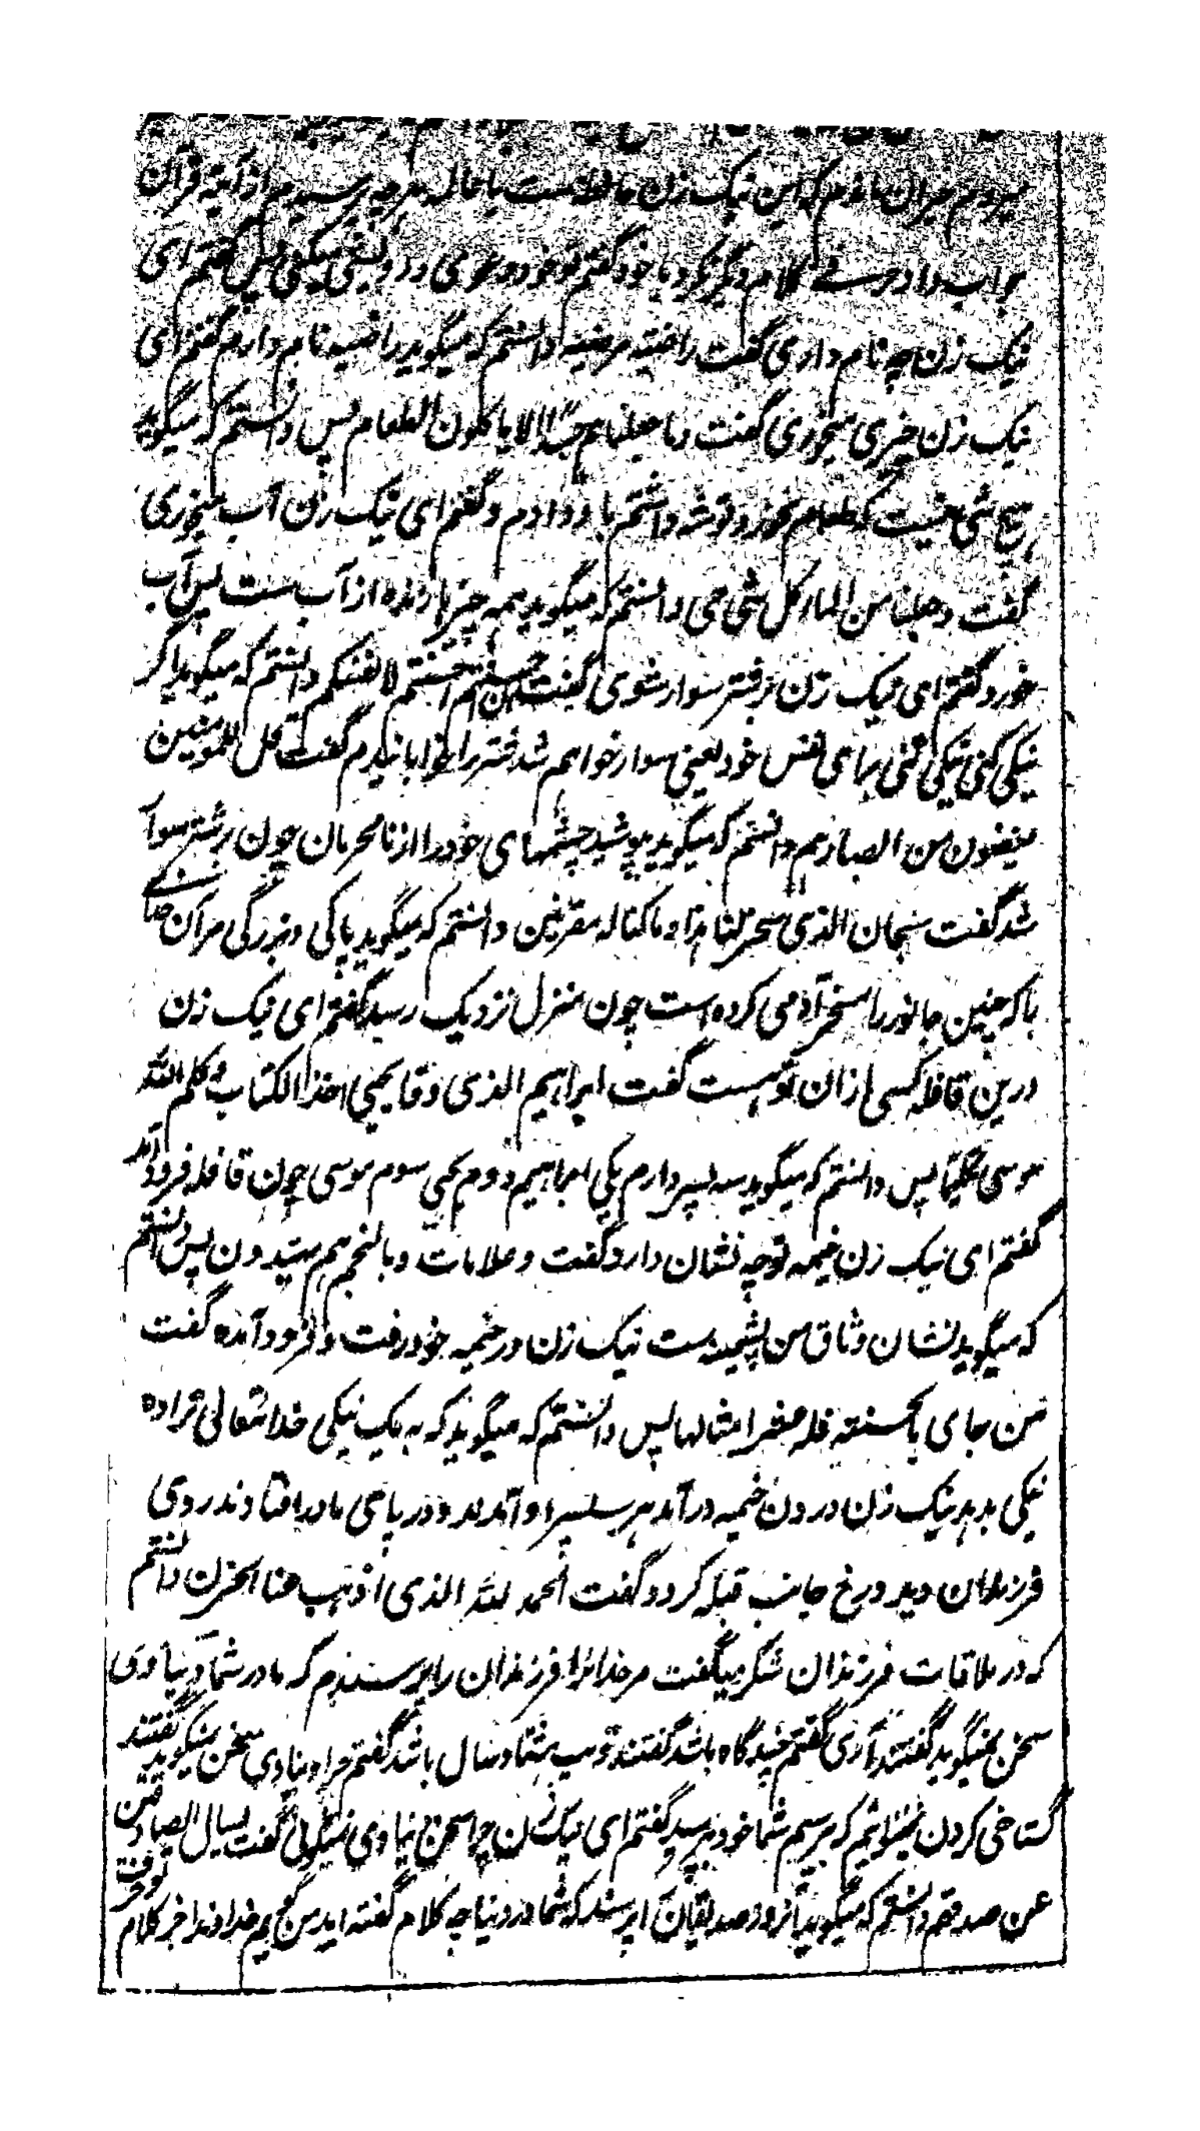 میروم حیران ماندم که این نیک زن حافظ است یا حاله هرچه پرسیدم از آیة قرآن
جواب داد نے کلام دیگر کرد با خود گفتم تو خود دعوی درویشی میکنی پس گفتم ای
نیک زن چه نام داری گفت راضیة مرضیة دانستم که میگوید راضیه نام دارم گفتم ای
نیک زن چیزی میخوری گفت وما جعلناهم جسدا الا یاکلون الطعام پس دانستم که میگوید
هیچ شی نیست که طعام نخورد توشه داشتم باو دادم و گفتم ای نیک زن آب میخوری
گفت وجعلنا من الماء کل شی حی دانستم که میگوید همه چیزها زنده از آب ست پس آب
خورد گفتم ای نیک زن برشتر سوار شوی گفت ان احسنتم احسنتم لانفسکم دانستم که میگوید اگر
نیکی کنی نیکی کنی برای نفس خود یعنی سوار خواهم شد شتر را خوابانیدم گفت قل للمومنین
یغضون من ابصارهم دانستم که میگوید بپوشید چشمهای خود را از نامحرمان چون برشتر سوار
شد گفت سبحان الذی سخر لنا هذا وماکنا له مقرنین دانستم که میگوید پاکی و بزرگی مر آن خدائے
را که چنین جانور را مسخر آدمی کرده است چون منزل نزدیک رسید گفتم ای نیک زن
درین قافله کسی از آن تو هست گفت ابراهیم الذی وفا یحیی خذ الکتاب و کلم الله
موسی تکلیما پس دانستم که میگوید سه پسر دارم یکی ابراهیم دوم یحیی سوم موسی چون قافله فرود آمد
گفتم ای نیک زن خیمه تو چه نشان دارد گفت وعلامات وبالنجم هم یهتدون پس دانستم
که میگوید نشان وثاق من پشمینه ست نیک زن در خیمه خود رفت و فرود آمده گفت
من جای بالحسنة فله عشر امثالها پس دانستم که میگوید که به یک نیکی خدا تعالی ترا ده
نیکی بدهد نیک زن درون خیمه درآمد هر سه پسر او آمدند و در پای مادر افتادند روی
فرزندان دید و رخ جانب قبله کرد و گفت الحمد لله الذی اذهب عنا الحزن دانستم
که در ملاقات فرزندان شکر میگفت مر خدا را از فرزندان را پرسیدم که مادر شما دنیاوی
سخن نمیگوید گفتند آری گفتم چند گاه باشد گفتند قریب هشتاد سال باشد گفتم چرا دنیاوی سخن نمیگوید گفتند
گستاخی کردن نمیتوانیم که پرسیم شما خود بپرسید گفتم ای نیک زن چرا سخن دنیاوی نمیگوئی گفت لیسال الصادقین
عن صدقهم دانستم که میگوید فردا از صدیقان پرسند که شما در دنیا چه کلام گفته اید من گویم خداوندا جز کلام تو نگفت